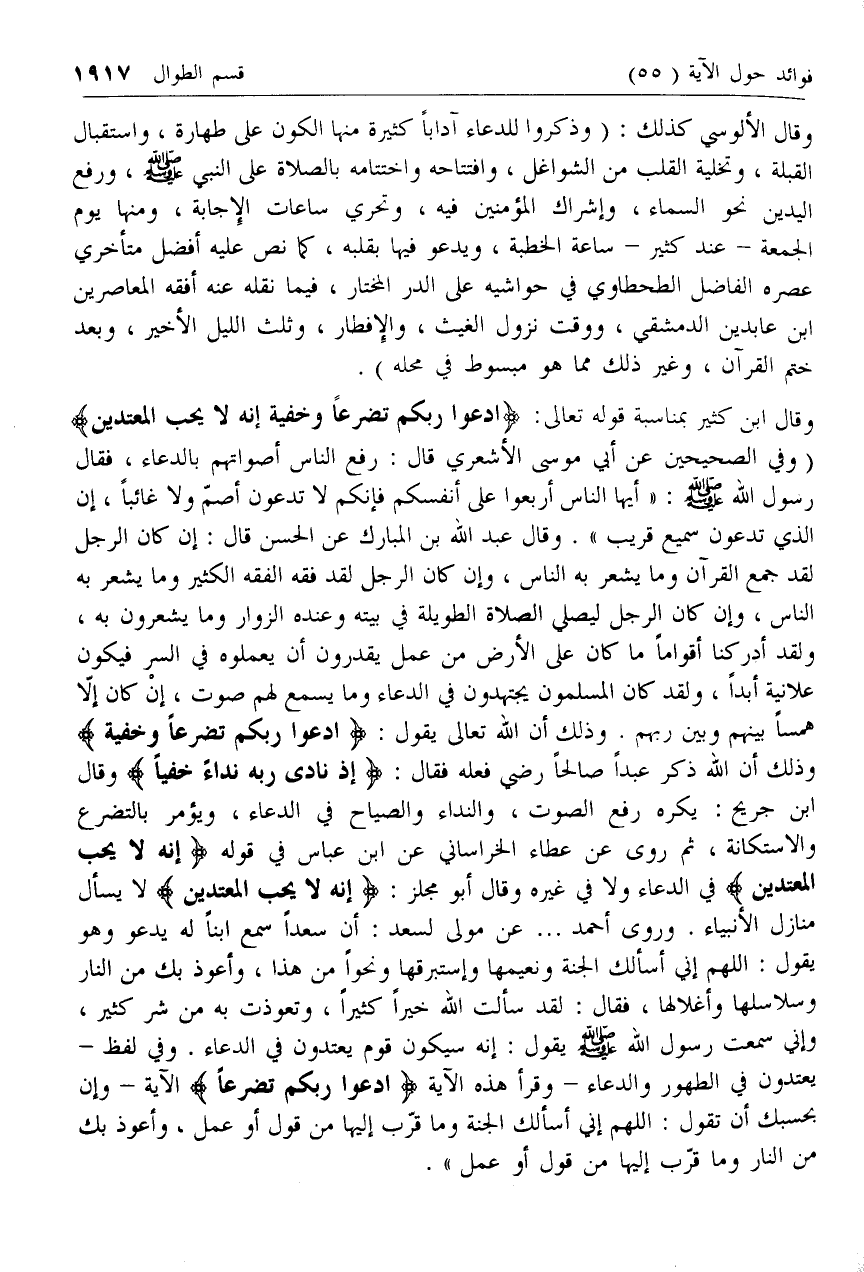 فوائد حول الآية ( ٥٥) قسم الطوال ١٩١٧
وقال الألوسي كذلك : ( وذكروا للدعاء آداباً كثيرة منها الكون على طهارة ، واستقبال
القبلة ، وتخلية القلب من الشواغل ، وافتتاحه واختتامه بالصلاة على النبي ﷺ ، ورفع
اليدين نحو السماء ، وإشراك المؤمنين فيه ، وتحري ساعات الإجابة ، ومنها يوم
الجمعة – عند كثير – ساعة الخطبة ، ويدعو فيها بقلبه ، كما نص عليه أفضل متأخري
عصره الفاضل الطحطاوي في حواشيه على الدر المختار ، فيما نقله عنه أفقه المعاصرين
ابن عابدين الدمشقي ، ووقت نزول الغيث ، والإفطار ، وثلث الليل الأخير ، وبعد
ختم القرآن ، وغير ذلك مما هو مبسوط في محله ) .
وقال ابن كثير بمناسبة قوله تعالى: ﴿ادعوا ربكم تضرعاً وخفية إنه لا يحب المعتدين﴾
( وفي الصحيحين عن أبي موسى الأشعري قال : رفع الناس أصواتهم بالدعاء ، فقال
رسول الله ﷺ : « أيها الناس أربعوا على أنفسكم فإنكم لا تدعون أصمّ ولا غائباً ، إن
الذي تدعون سميع قريب » . وقال عبد الله بن المبارك عن الحسن قال : إن كان الرجل
لقد جمع القرآن وما يشعر به الناس ، وإن كان الرجل لقد فقه الفقه الكثير وما يشعر به
الناس ، وإن كان الرجل ليصلي الصلاة الطويلة في بيته وعنده الزوار وما يشعرون به ،
ولقد أدركنا أقواماً ما كان على الأرض من عمل يقدرون أن يعملوه في السر فيكون
علانية أبداً ، ولقد كان المسلمون يجتهدون في الدعاء وما يسمع لهم صوت ، إنْ كان إلّا
همساً بينهم وبين ربهم . وذلك أن الله تعالى يقول : ﴿ ادعوا ربكم تضرعاً وخفية ﴾
وذلك أن الله ذكر عبداً صالحاً رضي فعله فقال : ﴿ إذ نادى ربه نداءً خفياً ﴾ وقال
ابن جريج : يكره رفع الصوت ، والنداء والصياح في الدعاء ، ويؤمر بالتضرع
والاستكانة ، ثم روى عن عطاء الخراساني عن ابن عباس في قوله ﴿ إنه لا يحب
المعتدين ﴾ في الدعاء ولا في غيره وقال أبو مجلز : ﴿ إنه لا يحب المعتدين ﴾ لا يسأل
منازل الأنبياء . وروى أحمد ... عن مولى لسعد : أن سعداً سمع ابناً له يدعو وهو
يقول : اللهم إني أسألك الجنة ونعيمها وإستبرقها ونحواً من هذا ، وأعوذ بك من النار
وسلاسلها وأغلالها ، فقال : لقد سألت الله خيراً كثيراً ، وتعوذت به من شر كثير ،
وإني سمعت رسول الله ﷺ يقول : إنه سيكون قوم يعتدون في الدعاء . وفي لفظ –
يعتدون في الطهور والدعاء – وقرأ هذه الآية ﴿ ادعوا ربكم تضرعاً ﴾ الآية – وإن
بحسبك أن تقول : اللهم إني أسألك الجنة وما قرّب إليها من قول أو عمل ، وأعوذ بك
من النار وما قرّب إليها من قول أو عمل » .